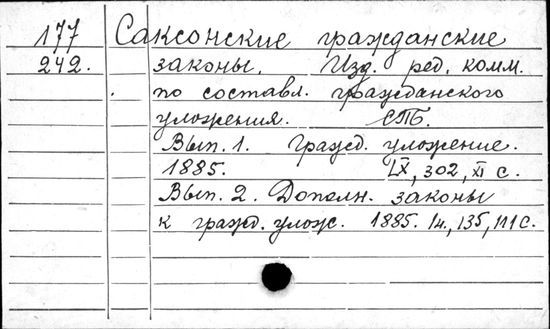 177 Саксонские гражданские
242. законы. Изд. ред. комм.
по составл. гражданского
уложения. СПБ.
Вып. 1. Гражд. уложение.
1885. LX, 302, XI с.
Вып. 2. Дополн. законы
к гражд. улож. 1885. 14, 135, III с.